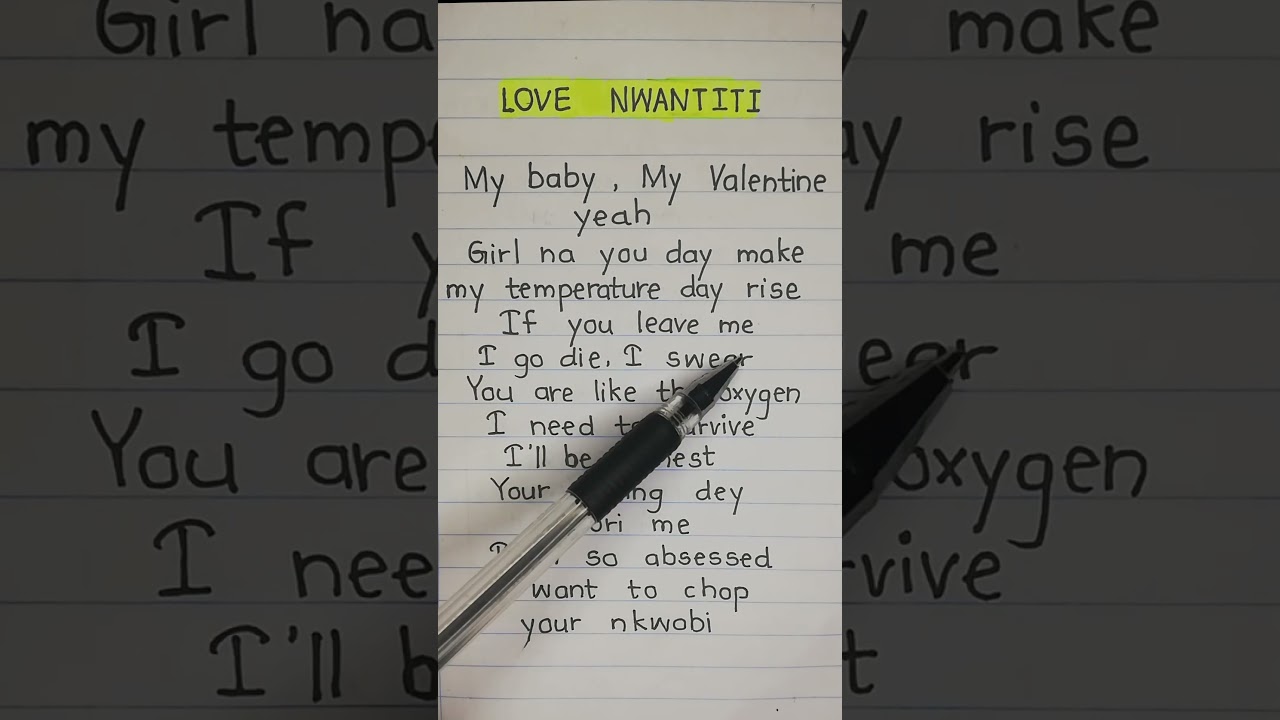 LOVE NWANTITI
My baby, My Valentine
yeah
Girl na you day make
my temperature day rise
If you leave me
I go die, I swear
You are like oxygen
I need
I'll be
Your dey
me
so absessed
want to chop
your nkwobi